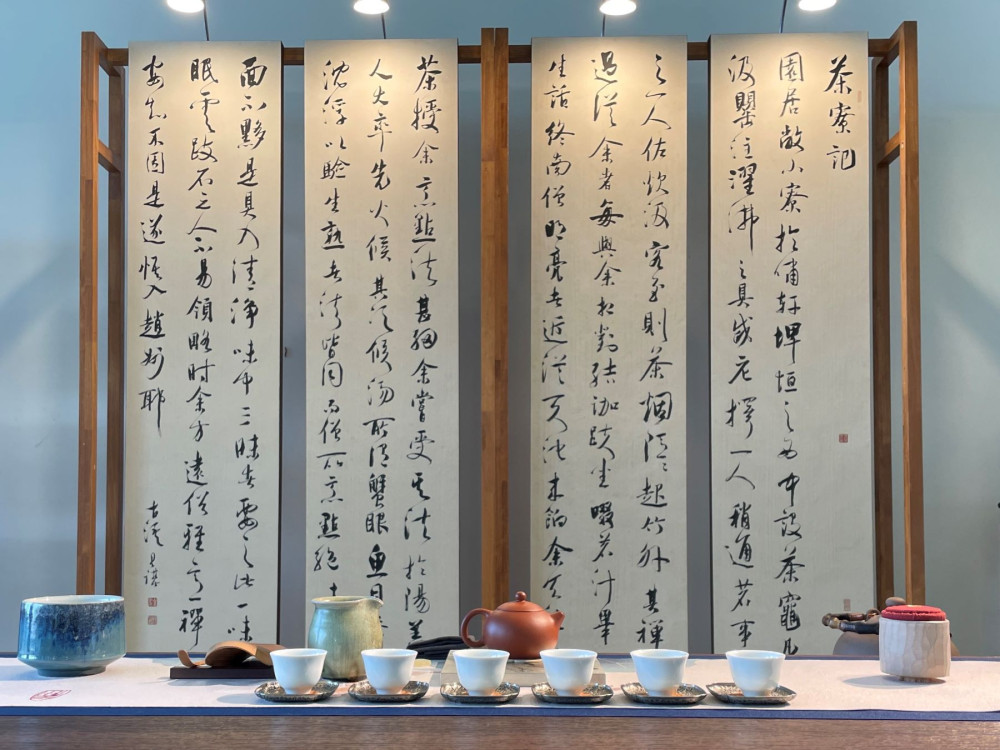 茶寮記
園居敞小寮於俌軒埤垣之西中設茶竈凡
汲罌注濯沸之具咸庀擇一人稍通茗事
之一人佐炊汲客至則茶烟隱々起竹外其禪
過從余者每與余相對結跏趺坐啜茗汁舉
生話終南僧明亮者近從天池來餉余天池
茶授余烹點法甚細余嘗受其法於陽羨
人大率先火候其次候湯所謂蟹眼魚目
沈浮以驗生熟者法皆同而僧所烹點絕
面不黟是具入清淨味中三昧者要之此一味
眠雲跂石之人不易領略時余方遠俗雅意禪
安知不因是遂悟入趙州耶